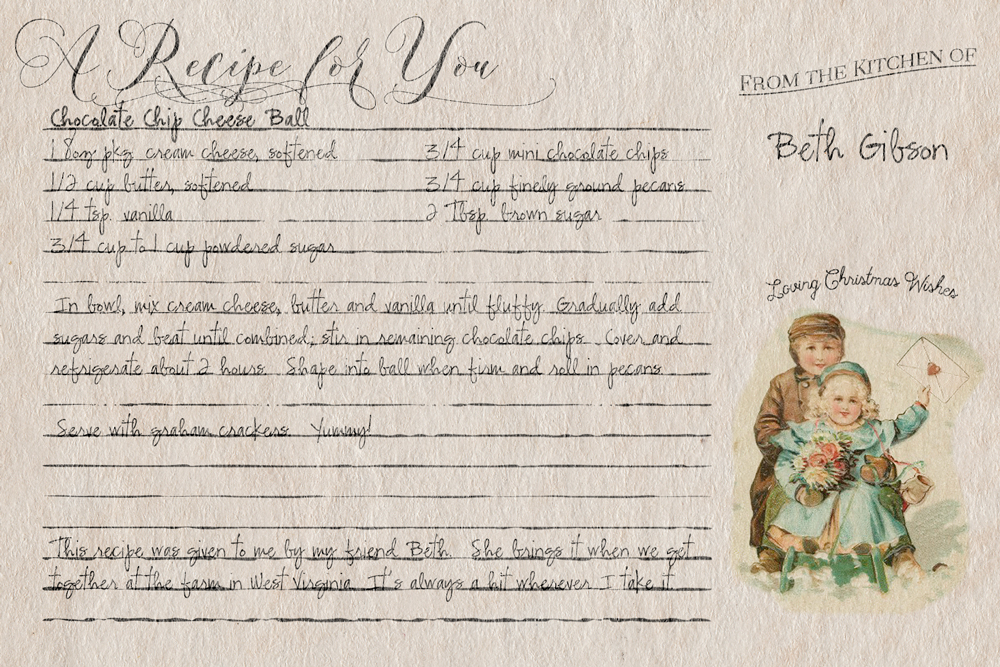 A Recipe for You
FROM THE KITCHEN OF
Beth Gibson
Chocolate Chip Cheese Ball
1 8oz pkg cream cheese, softened
3/4 cup mini chocolate chips
1/2 cup butter, softened
3/4 cup finely ground pecans
1/4 tsp. vanilla
2 Tbsp. brown sugar
3/4 cup to 1 cup powdered sugar
In bowl, mix cream cheese, butter and vanilla until fluffy. Gradually add
sugars and beat until combined; stir in remaining chocolate chips. Cover and
refrigerate about 2 hours. Shape into ball when firm and roll in pecans.
Serve with graham crackers. Yummy!
This recipe was given to me by my friend Beth. She brings it when we get
together at the farm in West Virginia. It's always a hit wherever I take it.
Loving Christmas Wishes